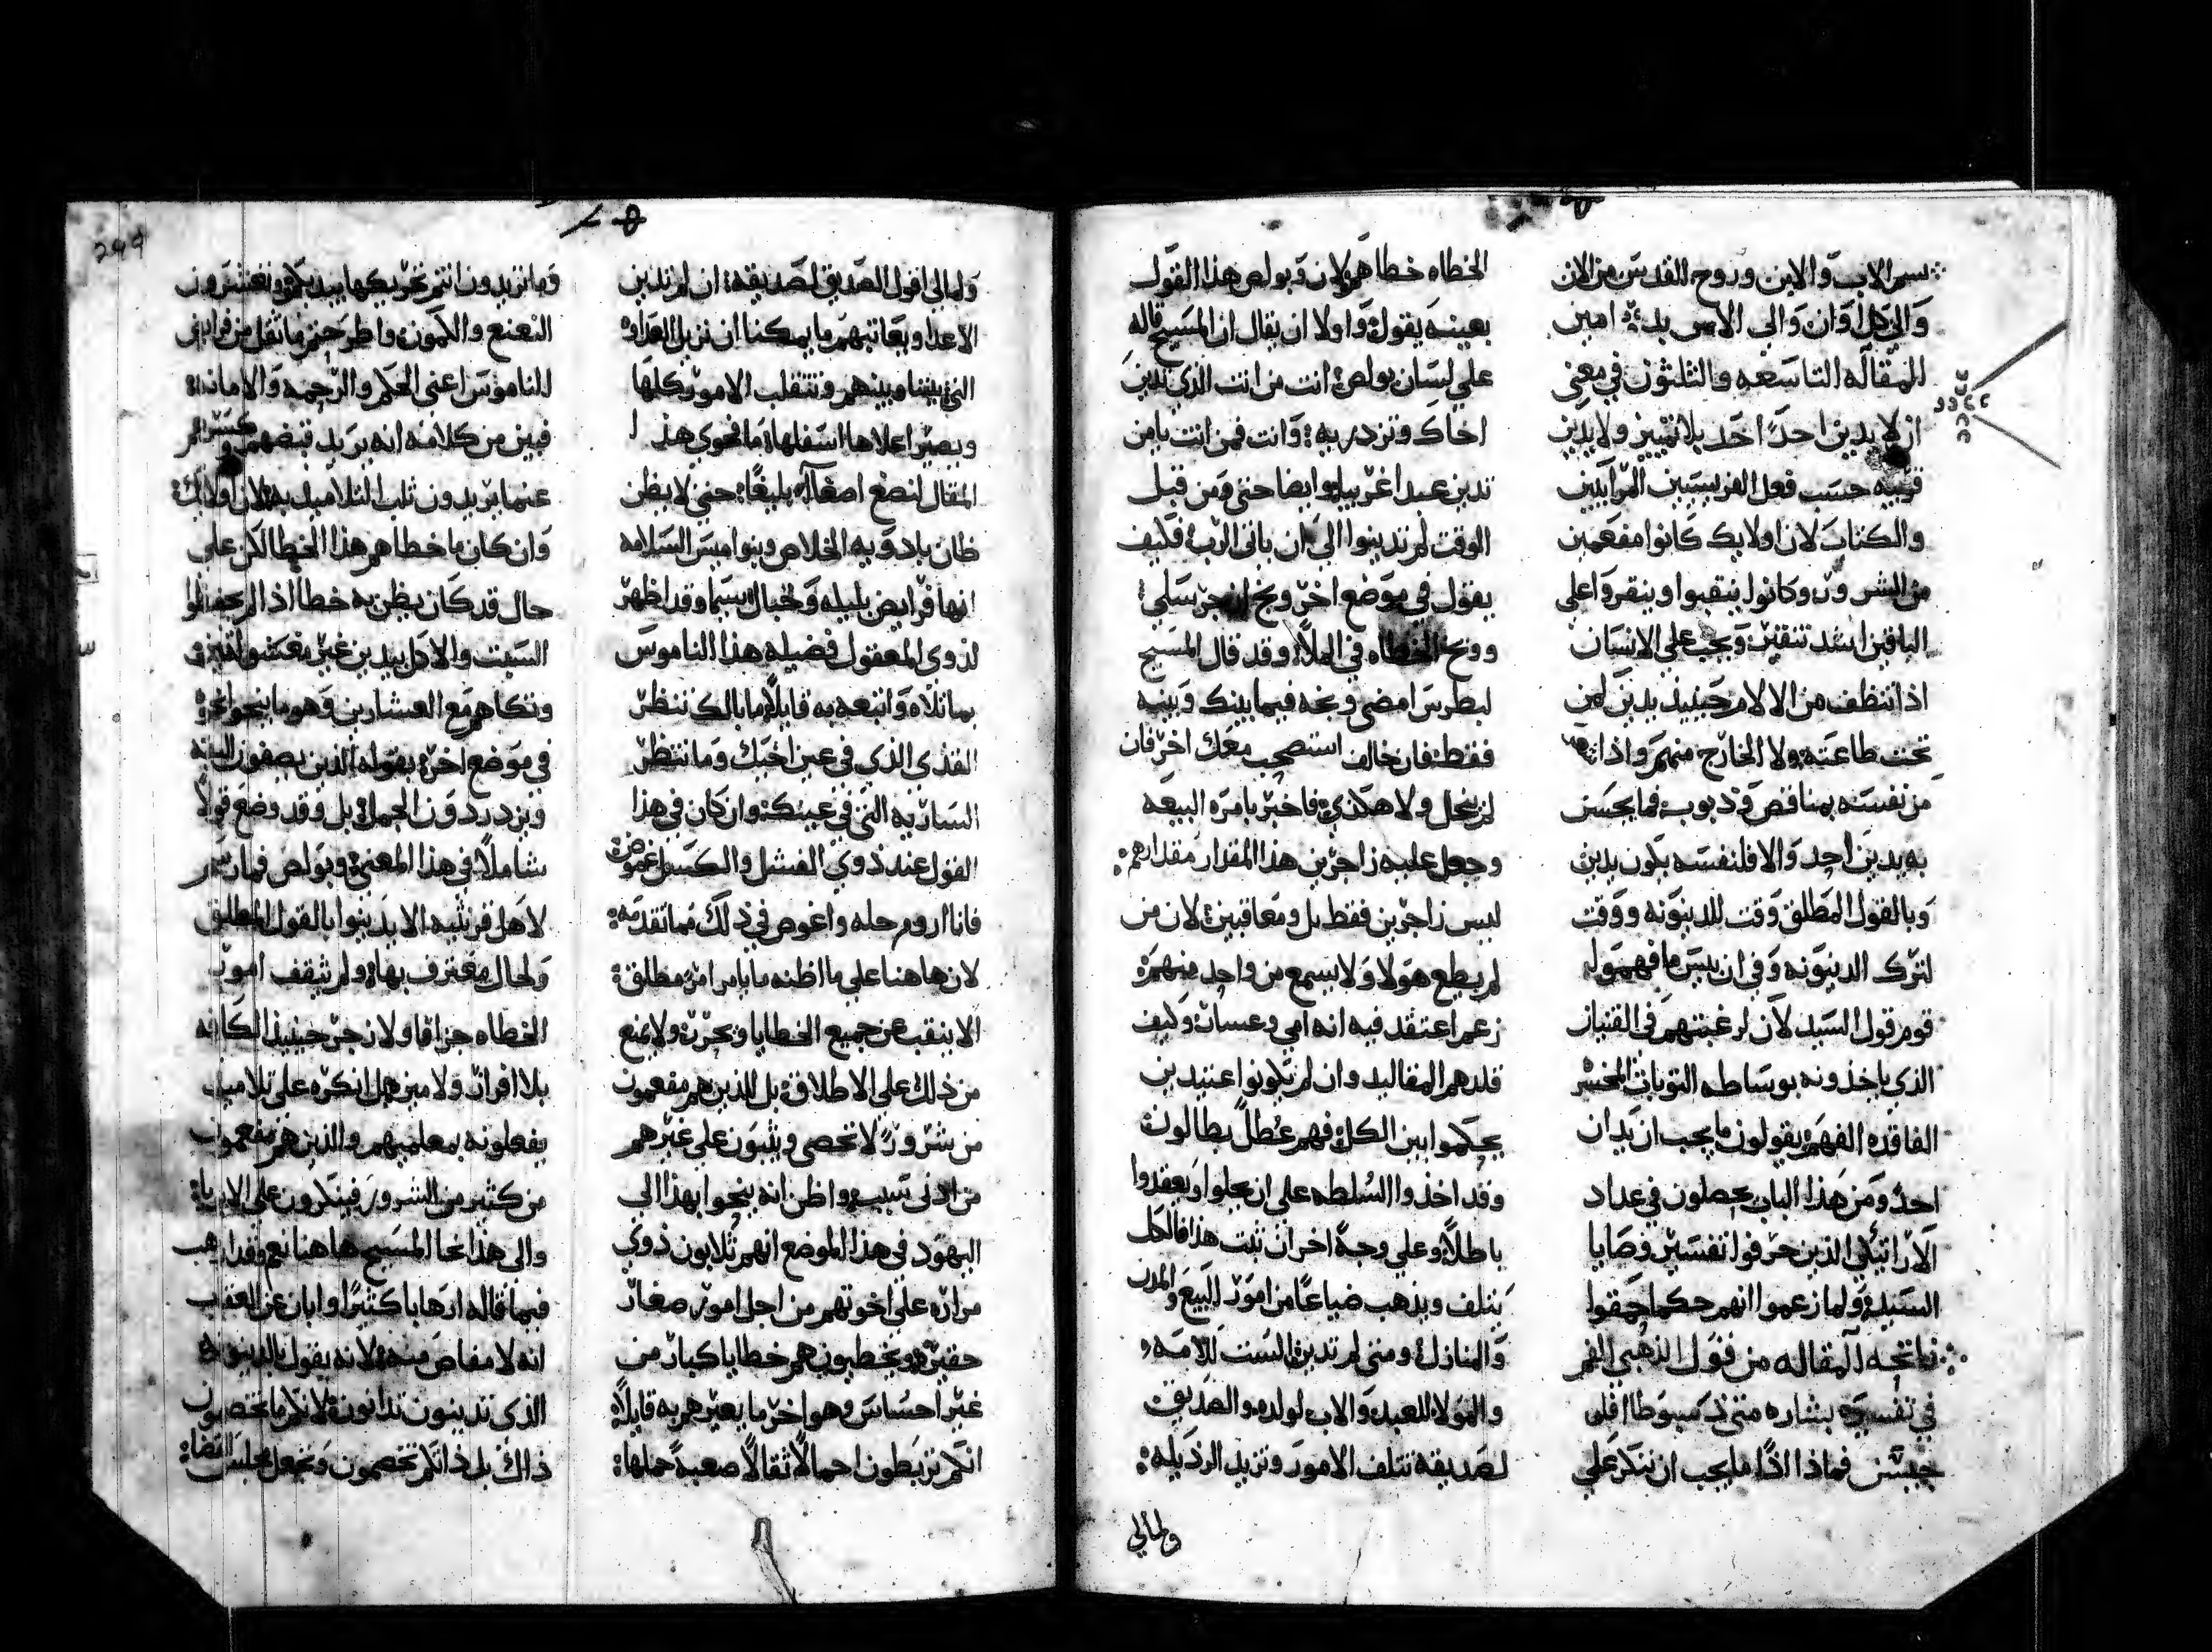 بسم الاب والابن وروح القدس من الان
والي كل اوان والي الابد امين
المقاله التاسعه والثلثون في معني
ان لا يدين احدًا احد بلا تمييز ولا يدين
قريبه حسب فعل الفريسيين المرآيين
والكتاب لان اولايك كانوا مفعمين
من الشرور وكانوا ينقبوا وينقروا علي
الباقين اشد تنقير ويجب علي الانسان
اذا تنظف من الالام حينيذ يدين لمن
تحت طاعته ولا الخارج منهم واذا
من نفسه بمناقص وذنوب فما يحسن
به يدين احد والا فلنفسه يكون يدين
وبالقول المطلق وقت للدينونه ووقت
لترك الدينونه وفي ان بيس ما فهموا
قوم قول السيد لان لرغبتهم في القنيان
الذي ياخذونه بوساطه التوبات
الفاقده الفهم يقولون ما يجب ان يدان
احد ومن هذا الباب يحصلون في عداد
الاراتيكي الذين حرفوا تفسير وصايا
السيد ولما زعموا انهم حكما حمقوا
فاتحه المقاله من قول الذهبي الفم
في تفسيره بشاره متي
فماذا اذًا ما يجب ان ننكر علي
الخطاه خطاهم لان وبولص هذا القول
بعينه يقول واولا ان يقال ان المسيح قاله
علي لسان بولص انت من انت الذي تدين
اخاك وتزدري به وانت فمن انت يا من
تدين عبدا غريبا وايضا حتي ومن قبل
الوقت لم تدينوا الي ان ياتي الرب فكيف
يقول في موضع اخر وبخ ازجر سلي
ووبخ الخطاه في الملأ وقد قال المسيح
لبطرس امضي وبخه فيما بينك وبينه
فقط فان خالف استصحب معك اخر فان
لم ينحل ولا هكذي فاخبر بامره البيعه
وجعل عليه زاجرين هذا المقدار مقدارهم
ليس زاجرين فقط بل ومعاقبين لان من
لم يطع هولا ولا يسمع من واحد منهم
زعم اعتقد فيه انه امي وعسار وكيف
قلدهم المقاليد وان لم يكونوا عتيدين
يحكموا بين الكل فهم عُطل بطالون
وقد اخذوا السلطه علي ان يحلوا ويعقدوا
باطلاً وعلي وجهً اخر ان ثبت هذا فالكل
يتلف ويذهب ضياعًا من امور البيع والمدن
والمنازل ومتي لم تدين الست للامه
والمولا للعبد والاب لولده والصديق
لصديقه تتلف الامور وتزيد الرذيله
ولمالي
ولمالي اقول الصديق لصديقه ان لم تدين
الاعدا ويعاتبهم ما يمكنا ان نزيل العداوه
التي بيننا وبينهم وتنقلب الامور كلها
ويصير اعلاها اسفلها ما فحوي هذا
المقال لنصغ اصغآ بليغًا حتي لا يظن
ظان بادويه الخلاص وبنواميس السلامه
انها فرايض بليله وخبال سيما وقد اظهر
لذوي المعقول فضيله هذا الناموس
بما تلاه واتبعه به قايلاً ما بالك تنظر
القذي الذي في عين اخيك وما تنظر
الساريه التي في عينك وان كان في هذا
القول عند ذوي الفشل والكسل غموض
فانا اروم حله واغوص في ذلك مما تقدمه
لان هاهنا علي ما اظنه ما يامر امر مطلق
الا ينقب عن جميع الخطايا ويحرر ولا يمنع
من ذلك علي الاطلاق بل للذين هم مفعمون
من شرورً لا تحصي ويثبون علي غيرهم
من ادني سبب واظن انه ينحوا بهذا الي
اليهود في هذا الموضع انهم ثلابون ذوي
مراره علي اخوتهم من اجل امور صغار
حقيره ويخطيون هم خطايا كبار من
غير احساس وهو اخر ما يعيرهم به قايلاً
انكم تربطون احمالاً ثقالاً صعبةً حملها
وما تريدون انتم تحريكها بيديكم وتعشرون
النعنع والكمون واطرحتم ما ثقل من فرايض
للناموس اعني الحكم والرحمه والامانه
فبين من كلامه انه يريد قبضهم
عنما يريدون ثلب التلاميذ به لان اولايك
وان كان ما خطاهم هذا الخطا لكن علي
حال قد كان يظن به خطا اذا لم يحفظوا
السبت والاكل بيدين غير مغسولتين
وتكاهم مع العشارين وهو ما ينحوا نحوه
في موضع اخر بقوله الذين يصفون البقه
ويزدردون الجمل بل وقد وضع قولاً
شاملاً في هذا المعني وبولص فما رسم
لاهل قرنثيه الا يدينوا بالقول المطلق
ولحال معترف بها ولم يثقف امور
الخطاه جزافا ولا زجر حينيذ الكافه
بلا افراز ولا مين بل انكره علي تلاميذ
يفعلونه بمعلميهم والذين هم مفعمون
من كثير من الشرور فينكرون علي الابريا
والي هذا نحا المسيح هاهنا نعم وقد ارهب
فيما قاله ارهابا كثيرًا وابان عن العقاب
انه لا مفاص منه لانه يقول بالدينونه
الذي تدينون تدانون لانكم ما تختصون
ذاك بل ذاتكم تخصمون وتجعل مجلس القضا